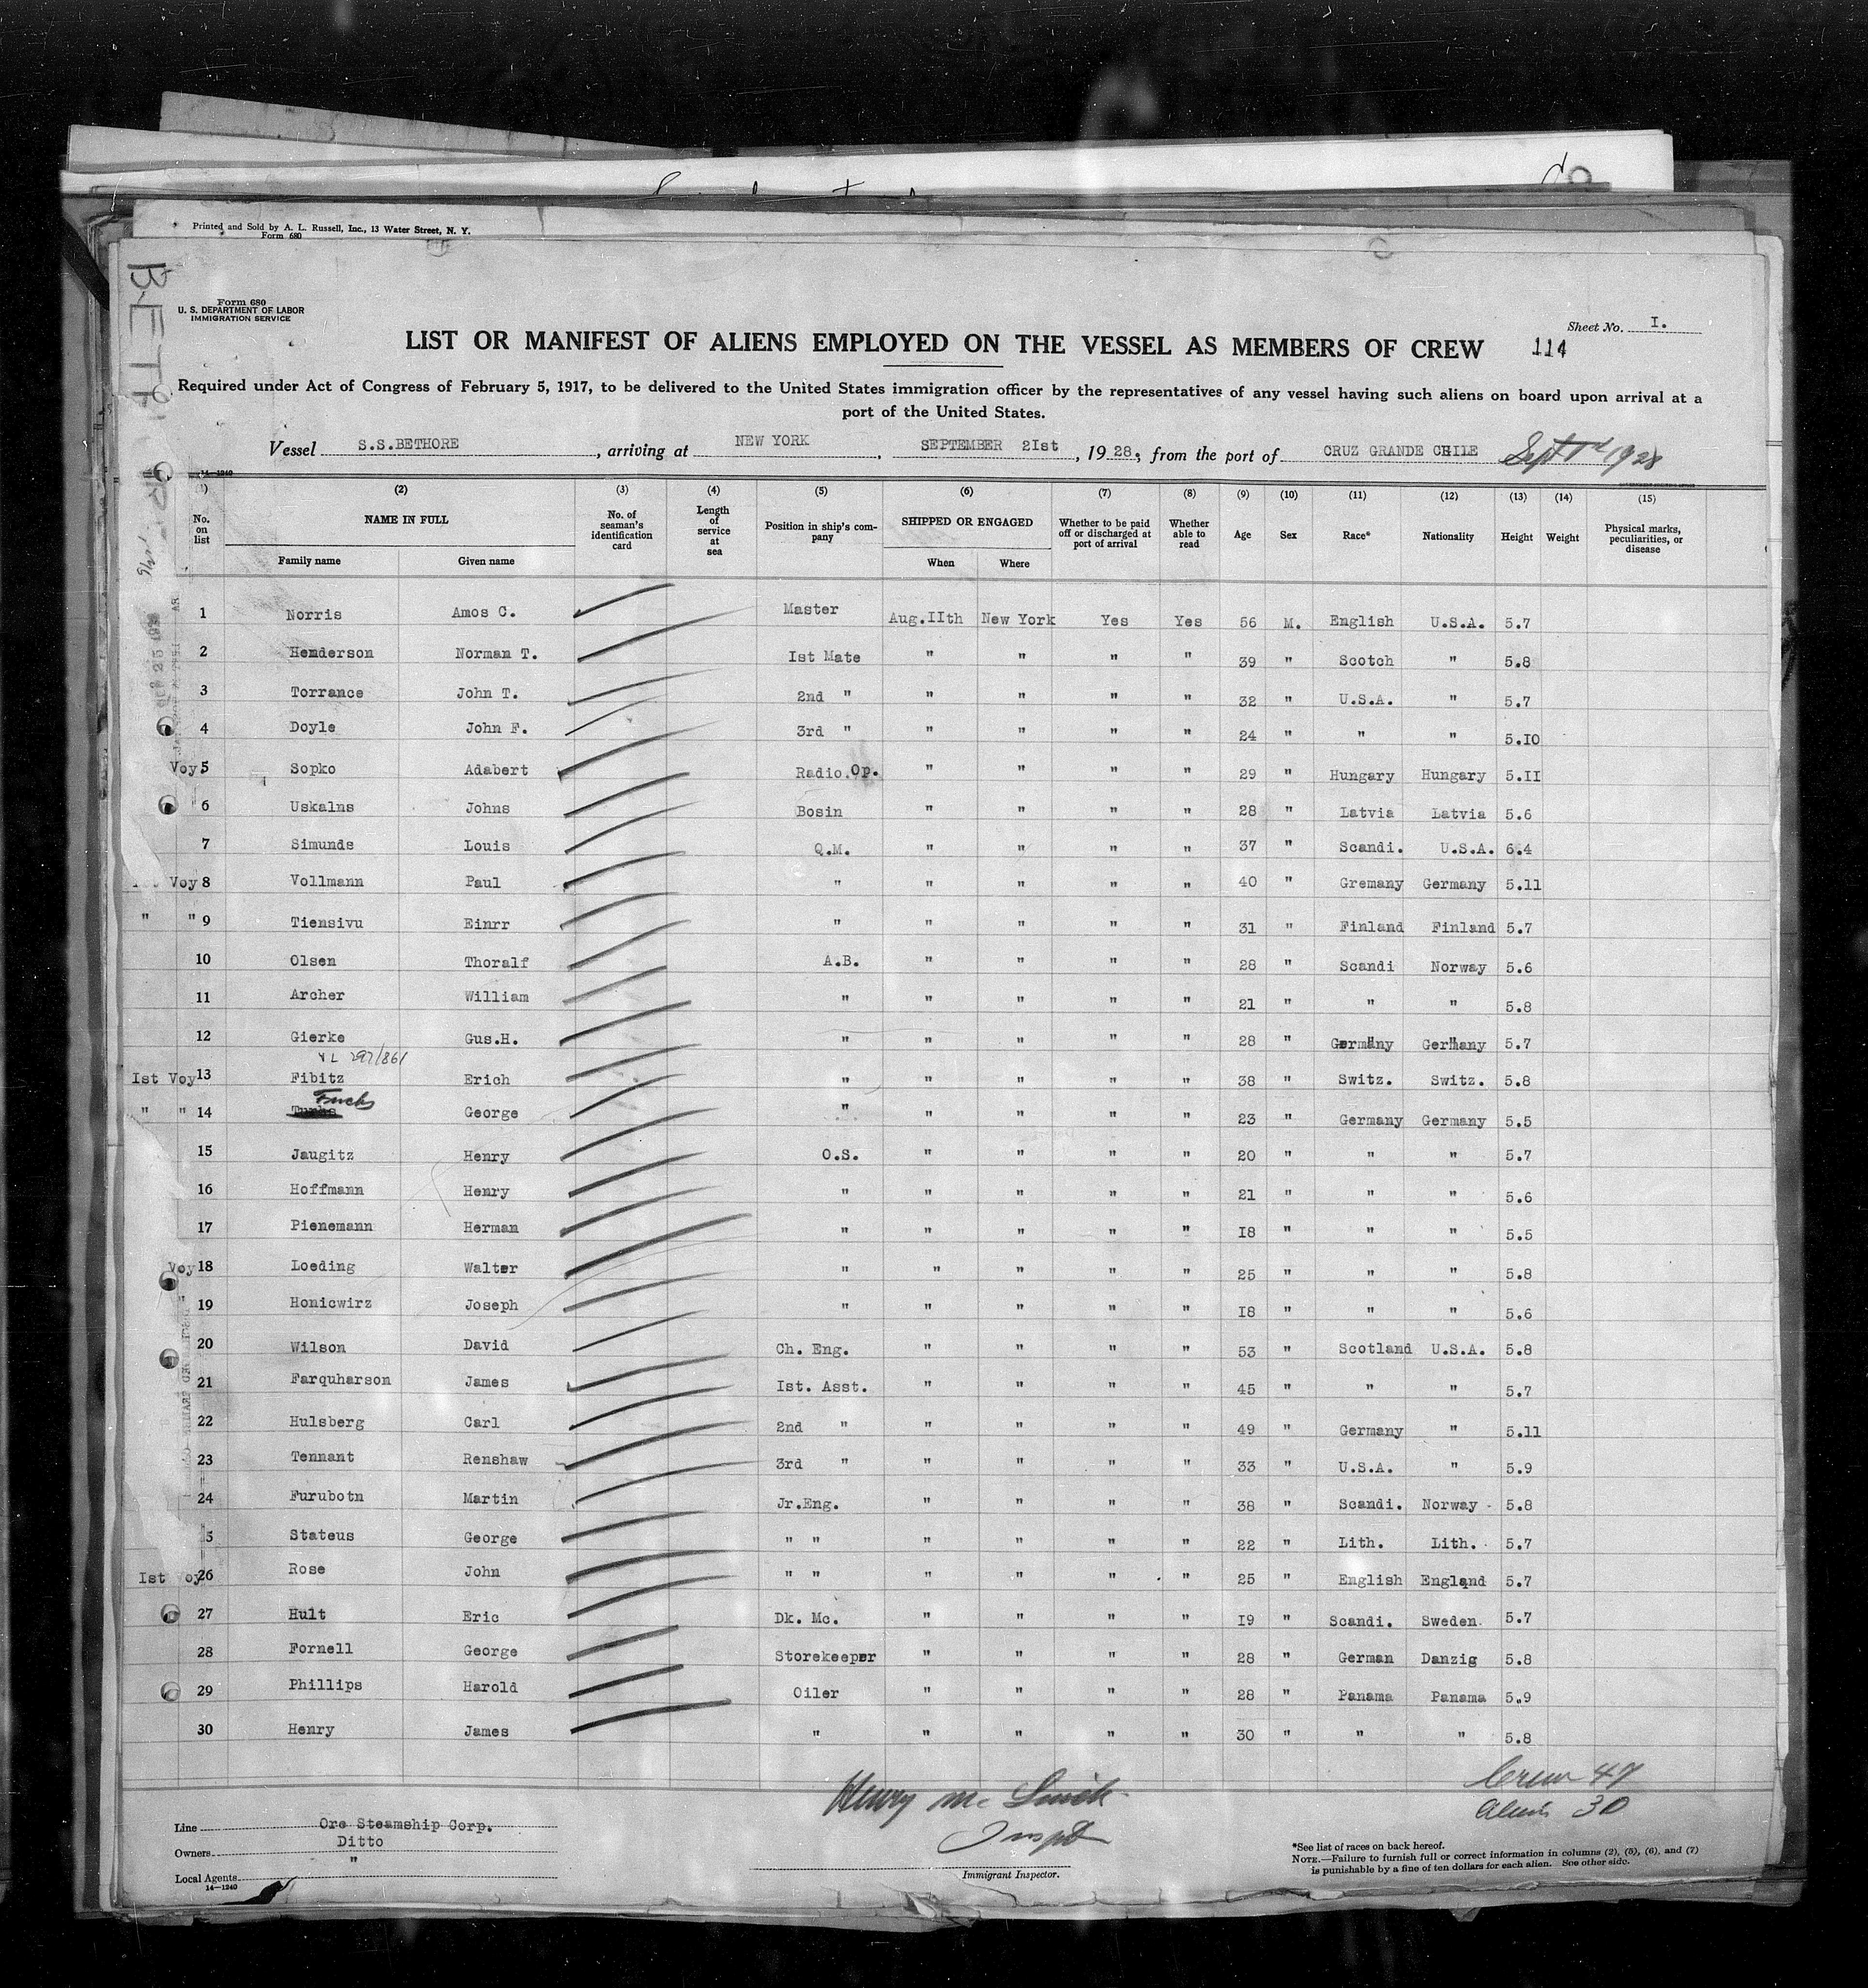 Printed and Sold by A. L. Russell, Inc., 13 Water Street, N. Y.
Form 680
Form 680
U. S. DEPARTMENT OF LABOR
IMMIGRATION SERVICE
Sheet No. I.
LIST OR MANIFEST OF ALIENS EMPLOYED ON THE VESSEL AS MEMBERS OF CREW 114
Required under Act of Congress of February 5, 1917, to be delivered to the United States immigration officer by the representatives of any vessel having such aliens on board upon arrival at a
port of the United States.
Vessel S.S.BETHORE, arriving at NEW YORK, SEPTEMBER 21st, 1928, from the port of CRUZ GRANDE CHILE Sept 1928
14—1240
(1) (2) (3) (4) (5) (6) (7) (8) (9) (10) (11) (12) (13) (14) (15)
No. on list NAME IN FULL Family name Given name No. of seaman's identification card Length of service at sea Position in ship's company SHIPPED OR ENGAGED When Where Whether to be paid off or discharged at port of arrival Whether able to read Age Sex Race* Nationality Height Weight Physical marks, peculiarities, or disease
1 Norris Amos C. Master Aug.IIth New York Yes Yes 56 M. English U.S.A. 5.7
2 Henderson Norman T. Ist Mate " " " " 39 " Scotch " 5.8
3 Torrance John T. 2nd " " " " " 32 " U.S.A. " 5.7
4 Doyle John F. 3rd " " " " " 24 " " " 5.IO
Voy 5 Sopko Adabert Radio.Op. " " " " 29 " Hungary Hungary 5.II
6 Uskalns Johns Bosin " " " " 28 " Latvia Latvia 5.6
7 Simunds Louis Q.M. " " " " 37 " Scandi. U.S.A. 6.4
Voy 8 Vollmann Paul " " " " " 40 " Gremany Germany 5.11
" " 9 Tiensivu Einrr " " " " " 31 " Finland Finland 5.7
10 Olsen Thoralf A.B. " " " " 28 " Scandi Norway 5.6
11 Archer William " " " " " 21 " " " 5.8
12 Gierke Gus.H. " " " " " 28 " Germany Germany 5.7
VL 297/861
Ist Voy 13 Fibitz Erich " " " " " 38 " Switz. Switz. 5.8
Fuchs
" " 14 George " " " " " 23 " Germany Germany 5.5
15 Jaugitz Henry O.S. " " " " 20 " " " 5.7
16 Hoffmann Henry " " " " " 21 " " " 5.6
17 Pienemann Herman " " " " " I8 " " " 5.5
Voy 18 Loeding Walter " " " " " 25 " " " 5.8
19 Honicwirz Joseph " " " " " I8 " " " 5.6
20 Wilson David Ch. Eng. " " " " 53 " Scotland U.S.A. 5.8
21 Farquharson James Ist. Asst. " " " " 45 " " " 5.7
22 Hulsberg Carl 2nd " " " " " 49 " Germany " 5.11
23 Tennant Renshaw 3rd " " " " " 33 " U.S.A. " 5.9
24 Furubotn Martin Jr.Eng. " " " " 38 " Scandi. Norway 5.8
5 Stateus George " " " " " " 22 " Lith. Lith. 5.7
Ist oy 26 Rose John " " " " " " 25 " English England 5.7
27 Hult Eric Dk. Mc. " " " " I9 " Scandi. Sweden 5.7
28 Fornell George Storekeeper " " " " 28 " German Danzig 5.8
29 Phillips Harold Oiler " " " " 28 " Panama Panama 5.9
30 Henry James " " " " " 30 " " " 5.8
Crew 47
Aliens 30
Henry Mc
Inspt
Immigrant Inspector.
Line Ore Steamship Corp.
Owners Ditto
Local Agents "
14—1240
*See list of races on back hereof.
NOTE.—Failure to furnish full or correct information in columns (2), (5), (6), and (7)
is punishable by a fine of ten dollars for each alien. See other side.